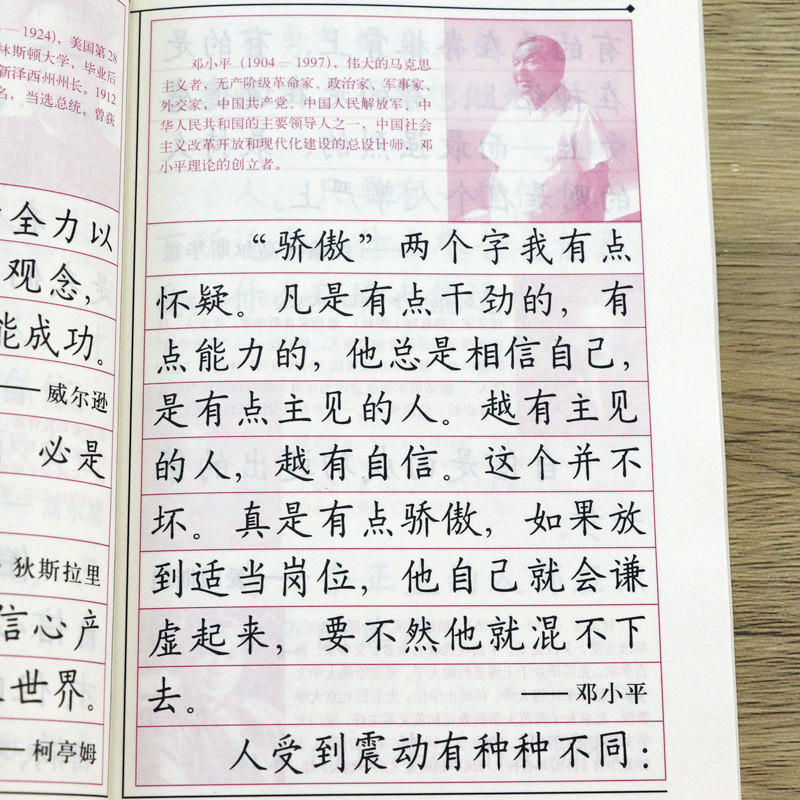 — 1924)，美国第28
林斯顿大学，毕业后
新泽西州州长。1912
名，当选总统。曾获
全力以
观念，
能成功。
— 威尔逊
必是
狄斯拉里
信心产
世界。
— 柯亭姆
邓小平（1904—1997)，伟大的马克思
主义者，无产阶级革命家、政治家、军事家、
外交家，中国共产党、中国人民解放军、中
华人民共和国的主要领导人之一，中国社会
主义改革开放和现代化建设的总设计师，邓
小平理论的创立者。
“骄傲”两个字我有点
怀疑。凡是有点干劲的，有
点能力的，他总是相信自己，
是有点主见的人。越有主见
的人，越有自信。这个并不
坏。真是有点骄傲，如果放
到适当岗位，他自己就会谦
虚起来，要不然他就混不下
去。 邓小平
人受到震动有种种不同：